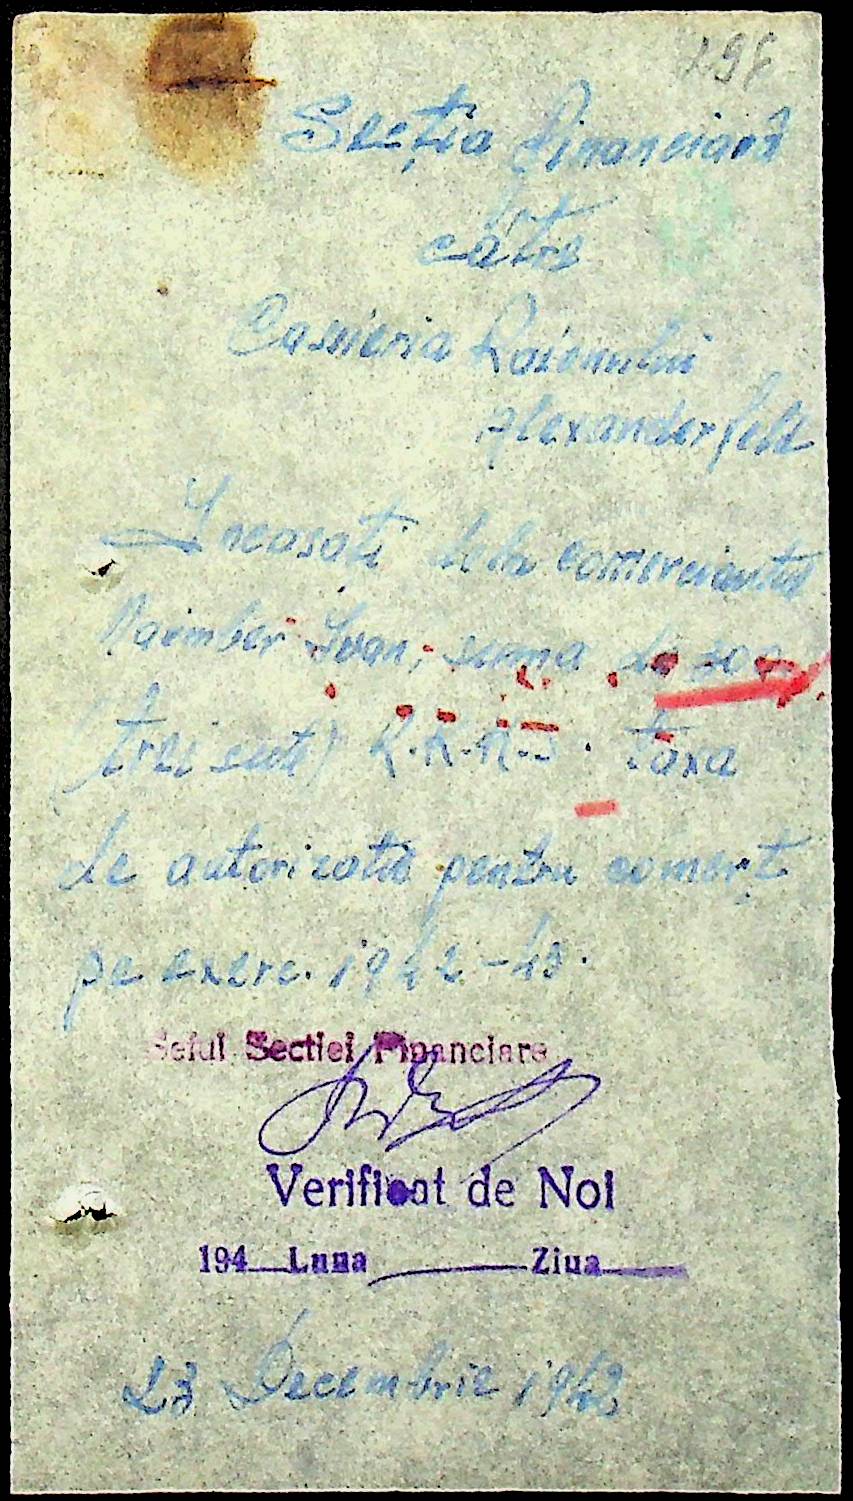 298
Secția Financiară
către
Casieria Raionului
Alexanderfeld
Incasați dela comerciantul
Naimber Ivan, suma de 300
(trei sute) R.K.K.S. taxa
de autorizatie pentru comerț
pe exerc. 1942-43.
Seful Sectiei Financiare
Verificat de Noi
194 Luna Ziua
23 Decembrie 1942